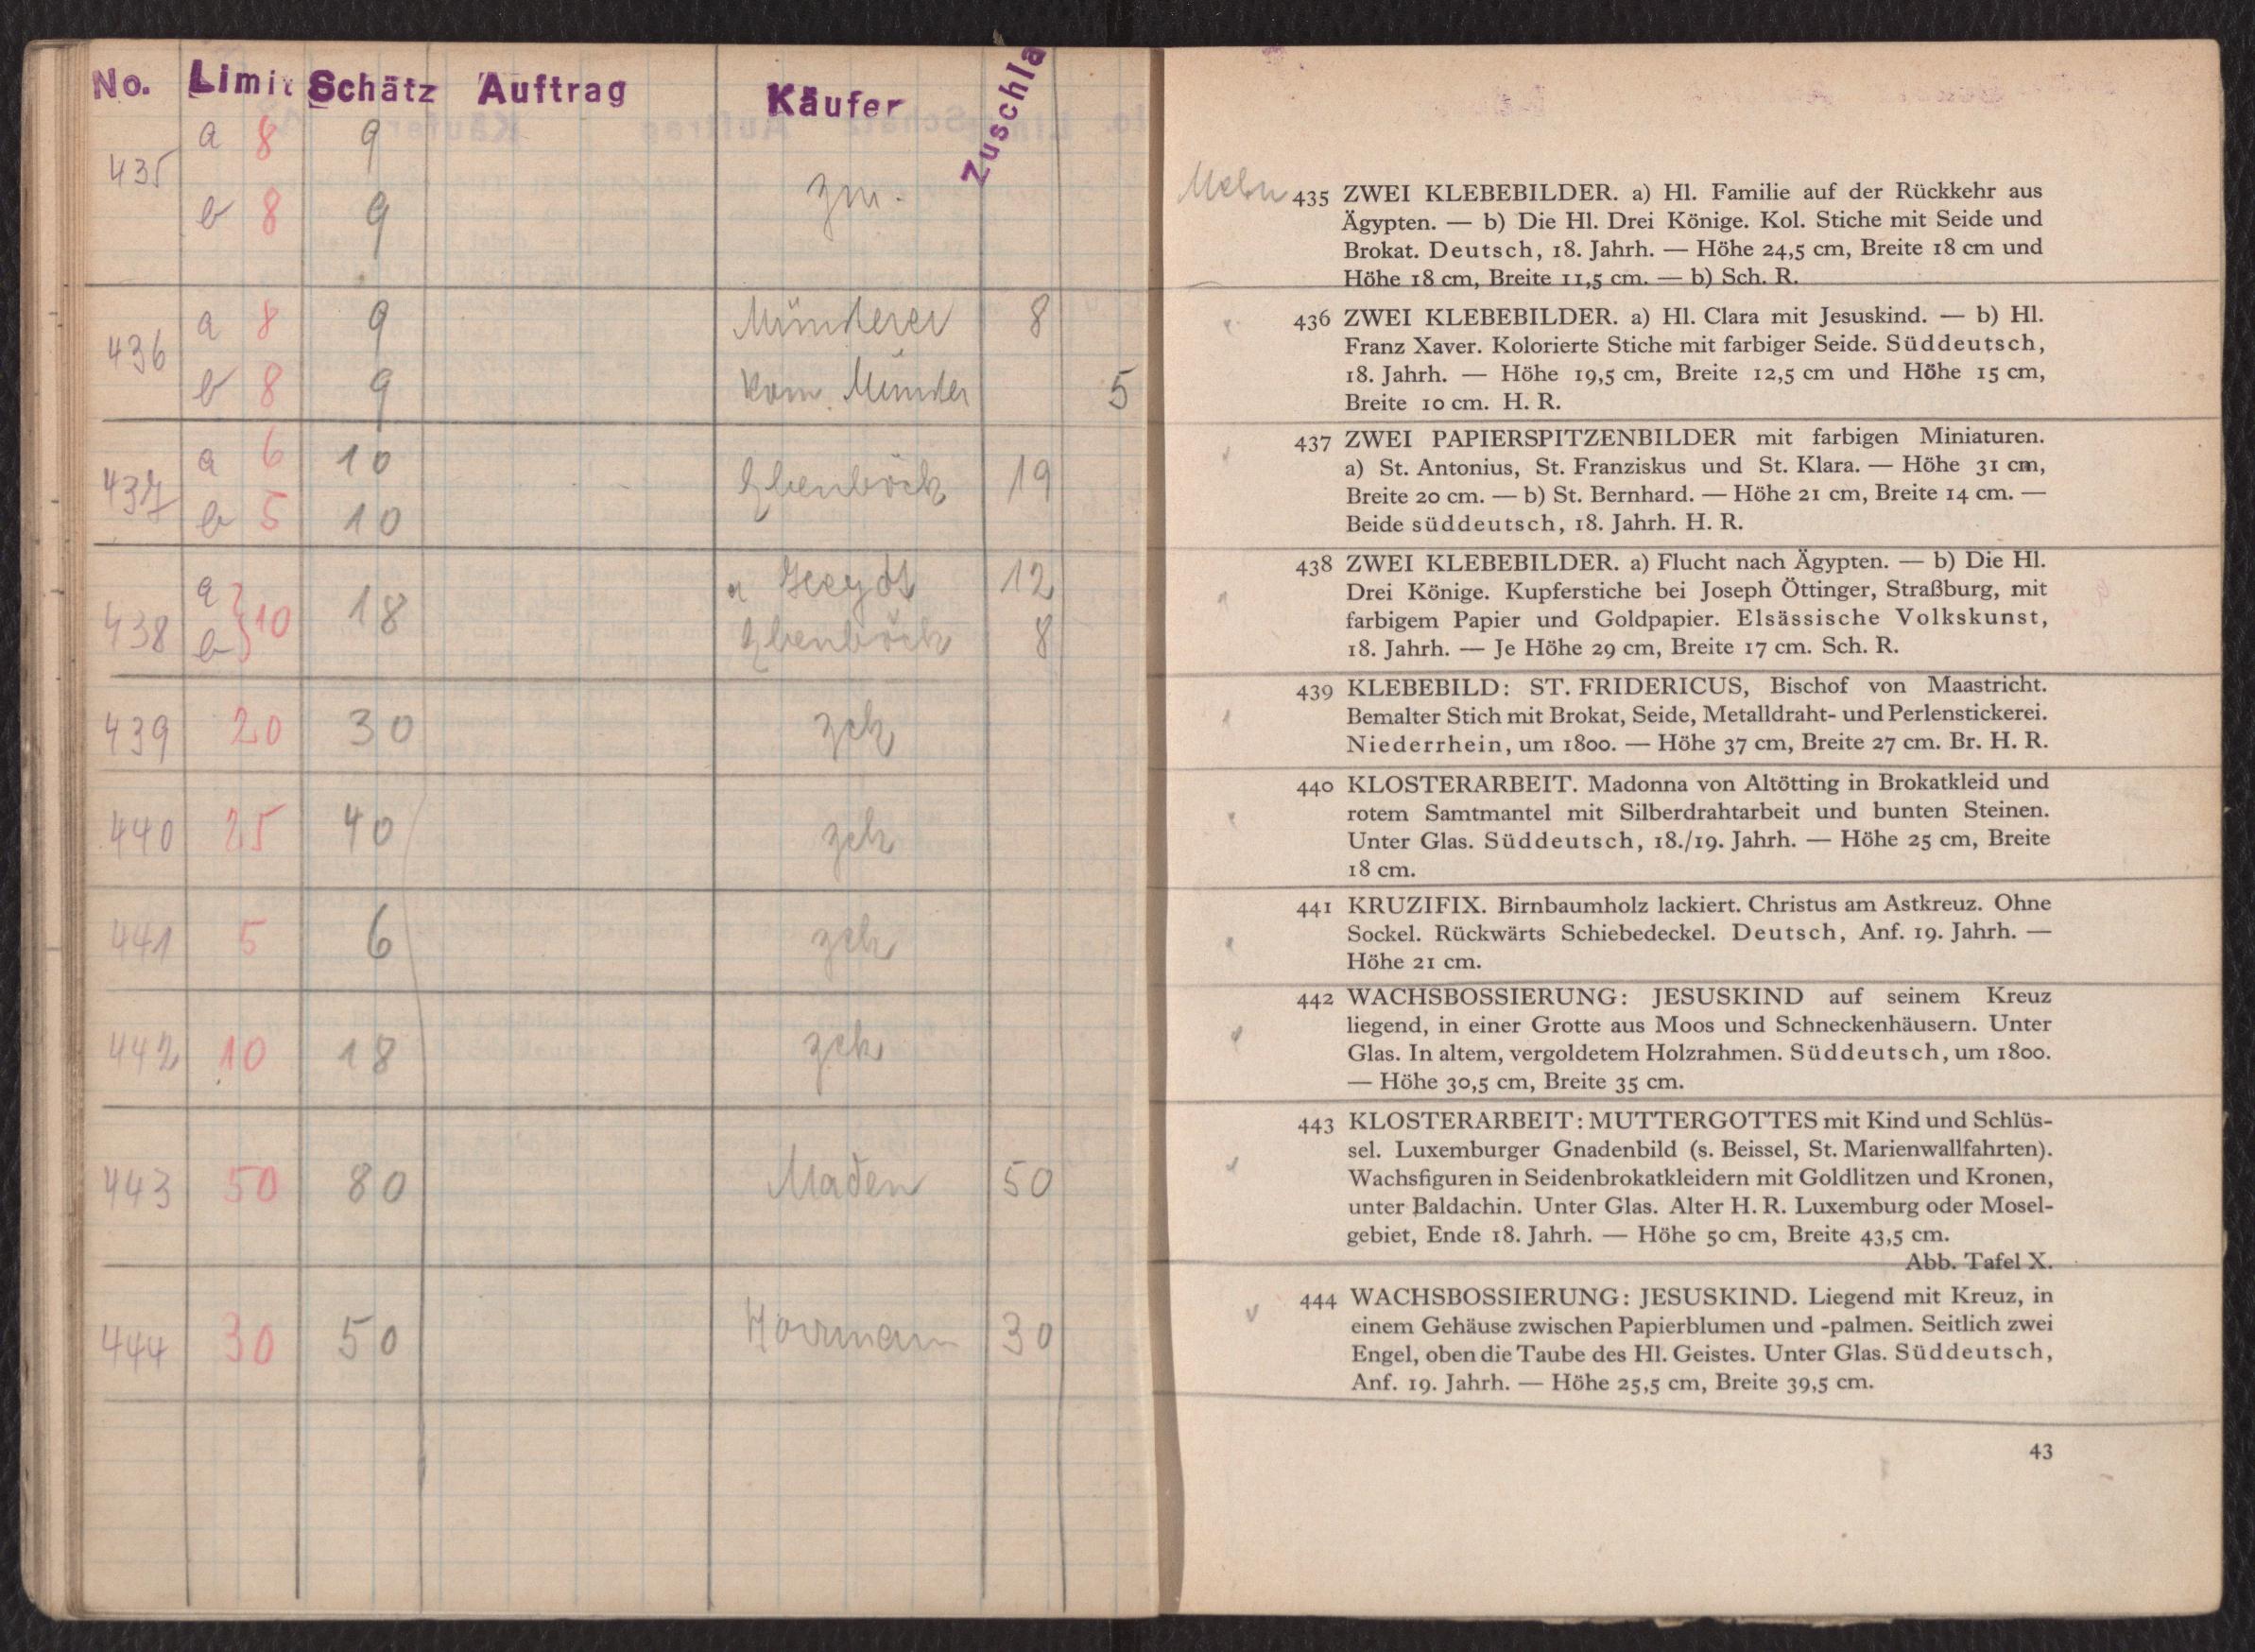 No. Limit Schätz Auftrag Käufer Zuschla
435 a 8 9
b 8 9
436 a 8 9 Münderer 8
b 8 9 5
437 a 6 10 Ebenböck 19
b 5 10
438 a 10 18 a 12
b Ebenböck 8
439 20 30 zck
440 25 40 zck
441 5 6 zck
442 10 18 zck
443 50 80 Maden 50
444 30 50 Horrmann 30
435 ZWEI KLEBEBILDER. a) Hl. Familie auf der Rückkehr aus
Ägypten. — b) Die Hl. Drei Könige. Kol. Stiche mit Seide und
Brokat. Deutsch, 18. Jahrh. — Höhe 24,5 cm, Breite 18 cm und
Höhe 18 cm, Breite 11,5 cm. — b) Sch. R.
436 ZWEI KLEBEBILDER. a) Hl. Clara mit Jesuskind. — b) Hl.
Franz Xaver. Kolorierte Stiche mit farbiger Seide. Süddeutsch,
18. Jahrh. — Höhe 19,5 cm, Breite 12,5 cm und Höhe 15 cm,
Breite 10 cm. H. R.
437 ZWEI PAPIERSPITZENBILDER mit farbigen Miniaturen.
a) St. Antonius, St. Franziskus und St. Klara. — Höhe 31 cm,
Breite 20 cm. — b) St. Bernhard. — Höhe 21 cm, Breite 14 cm. —
Beide süddeutsch, 18. Jahrh. H. R.
438 ZWEI KLEBEBILDER. a) Flucht nach Ägypten. — b) Die Hl.
Drei Könige. Kupferstiche bei Joseph Öttinger, Straßburg, mit
farbigem Papier und Goldpapier. Elsässische Volkskunst,
18. Jahrh. — Je Höhe 29 cm, Breite 17 cm. Sch. R.
439 KLEBEBILD: ST. FRIDERICUS, Bischof von Maastricht.
Bemalter Stich mit Brokat, Seide, Metalldraht- und Perlenstickerei.
Niederrhein, um 1800. — Höhe 37 cm, Breite 27 cm. Br. H. R.
440 KLOSTERARBEIT. Madonna von Altötting in Brokatkleid und
rotem Samtmantel mit Silberdrahtarbeit und bunten Steinen.
Unter Glas. Süddeutsch, 18./19. Jahrh. — Höhe 25 cm, Breite
18 cm.
441 KRUZIFIX. Birnbaumholz lackiert. Christus am Astkreuz. Ohne
Sockel. Rückwärts Schiebedeckel. Deutsch, Anf. 19. Jahrh. —
Höhe 21 cm.
442 WACHSBOSSIERUNG: JESUSKIND auf seinem Kreuz
liegend, in einer Grotte aus Moos und Schneckenhäusern. Unter
Glas. In altem, vergoldetem Holzrahmen. Süddeutsch, um 1800.
— Höhe 30,5 cm, Breite 35 cm.
443 KLOSTERARBEIT: MUTTERGOTTES mit Kind und Schlüs-
sel. Luxemburger Gnadenbild (s. Beissel, St. Marienwallfahrten).
Wachsfiguren in Seidenbrokatkleidern mit Goldlitzen und Kronen,
unter Baldachin. Unter Glas. Alter H. R. Luxemburg oder Mosel-
gebiet, Ende 18. Jahrh. — Höhe 50 cm, Breite 43,5 cm.
Abb. Tafel X.
444 WACHSBOSSIERUNG: JESUSKIND. Liegend mit Kreuz, in
einem Gehäuse zwischen Papierblumen und -palmen. Seitlich zwei
Engel, oben die Taube des Hl. Geistes. Unter Glas. Süddeutsch,
Anf. 19. Jahrh. — Höhe 25,5 cm, Breite 39,5 cm.
43